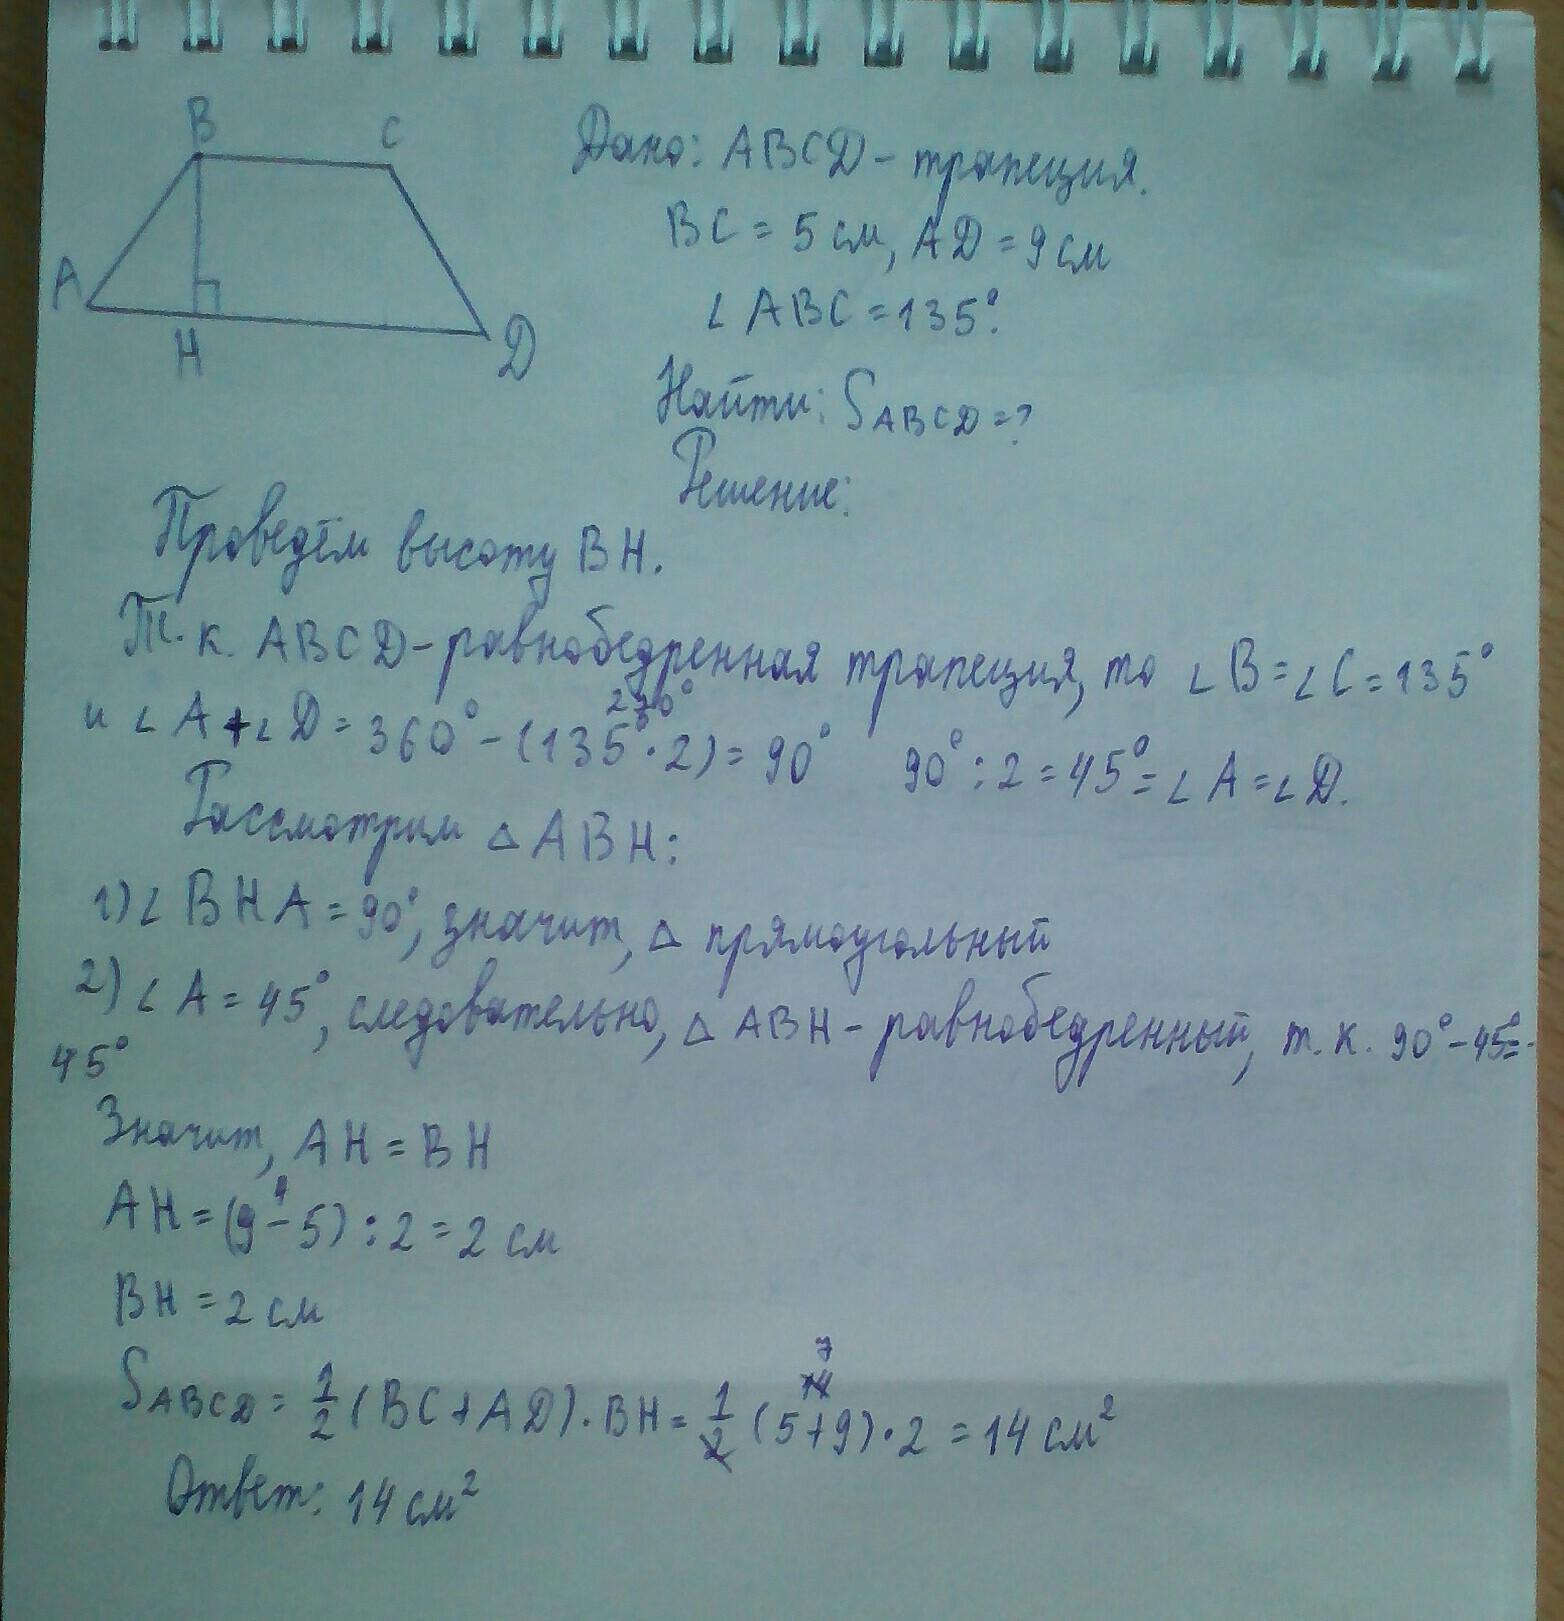 B
C
A
H
D
Дано: ABCD - трапеция.
BC = 5 см, AD = 9 см
∠ ABC = 135°.
Найти: SABCD = ?
Решение:
Проведём высоту BH.
Т.к. ABCD - равнобедренная трапеция, то ∠B = ∠C = 135°
270°
и ∠A + ∠D = 360° - (135° · 2) = 90° 90° : 2 = 45° = ∠A = ∠D.
Рассмотрим △ ABH:
1) ∠ BHA = 90°, значит, △ прямоугольный
2) ∠ A = 45°, следовательно, △ ABH - равнобедренный, т.к. 90° - 45° =
45°
Значит, AH = BH
4
AH = (9 - 5) : 2 = 2 см
BH = 2 см
7
14
SABCD = 1/2 (BC + AD) · BH = 1/2 (5 + 9) · 2 = 14 см²
Ответ: 14 см²